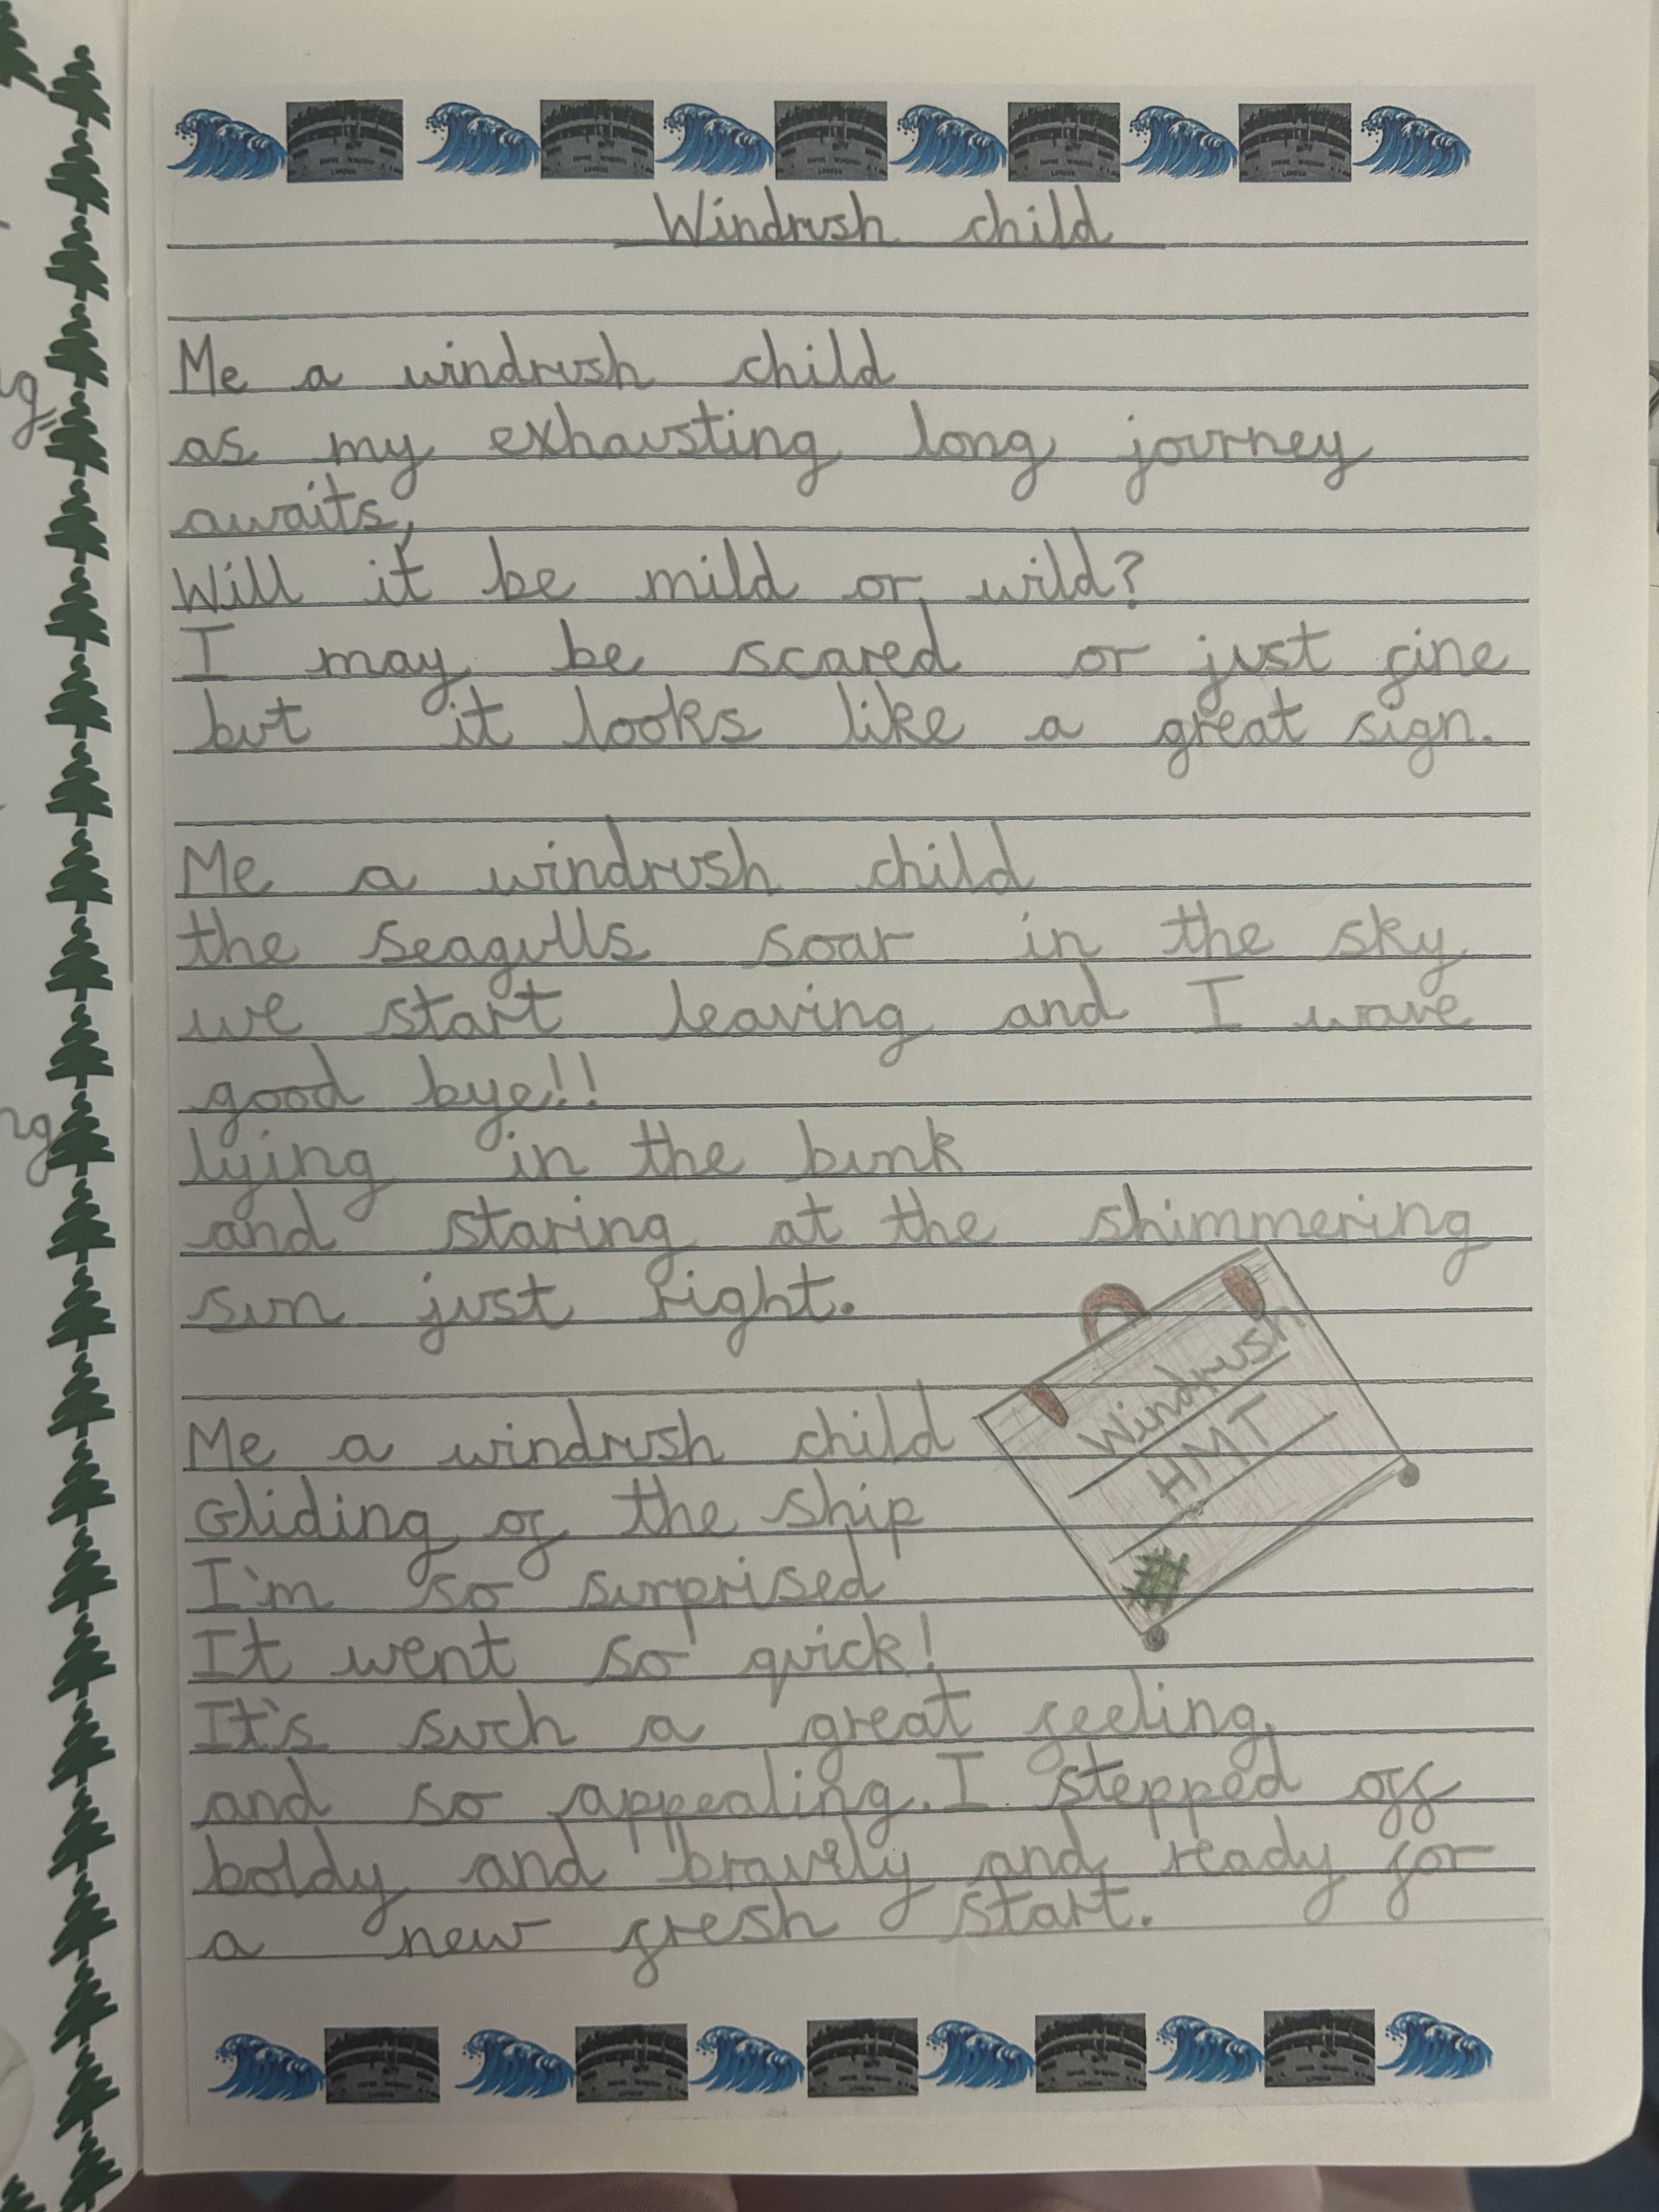 Windrush child
Me a windrush child
as my exhausting long journey
awaits,
Will it be mild or wild?
I may be scared or just fine
but it looks like a great sign.
Me a windrush child
the seagulls soar in the sky
we start leaving and I wave
good bye!!
lying in the bunk
and staring at the shimmering
sun just right.
Me a windrush child
Gliding of the ship
I'm so surprised
It went so quick!
It's such a great feeling,
and so appealing. I stepped off
boldy and bravely and ready for
a new fresh start.
Windrush
HMT